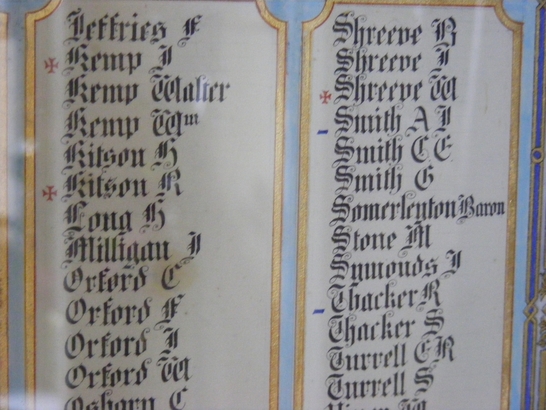 Jeffries F
Kemp J
Kemp Walter
Kemp Wm
Kitson H
Kitson R
Long H
Milligan J
Orford C
Orford F
Orford J
Orford W
Osborn C
Shreeve B
Shreeve J
Shreeve W
Smith A J
Smith C E
Smith G
Somerleyton Baron
Stone M
Symonds J
Thacker R
Thacker S
Turrell E R
Turrell S